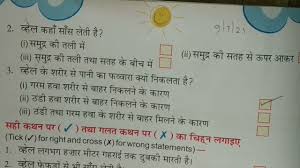 9/7/21
2. व्हेल कहाँ साँस लेती है?
(i) समुद्र की तली में
(ii) समुद्र की सतह से ऊपर आकर
(iii) समुद्र की तली तथा सतह के बीच में
3. व्हेल के शरीर से पानी का फव्वारा क्यों निकलता है?
(i) गरम हवा शरीर से बाहर निकलने के कारण
(ii) ठंडी हवा शरीर से बाहर निकलने के कारण
(iii) ठंडी हवा तथा गरम हवा के शरीर से बाहर मिलने के कारण
सही कथन पर (✓) तथा गलत कथन पर (✗) का चिह्न लगाइए
(Tick (✓) for right and cross (✗) for wrong statements)—
1. व्हेल लगभग हजार मीटर गहराई तक डुबकी मारती है।
व्हेल फेफड़ों से भी साँस लेती है।